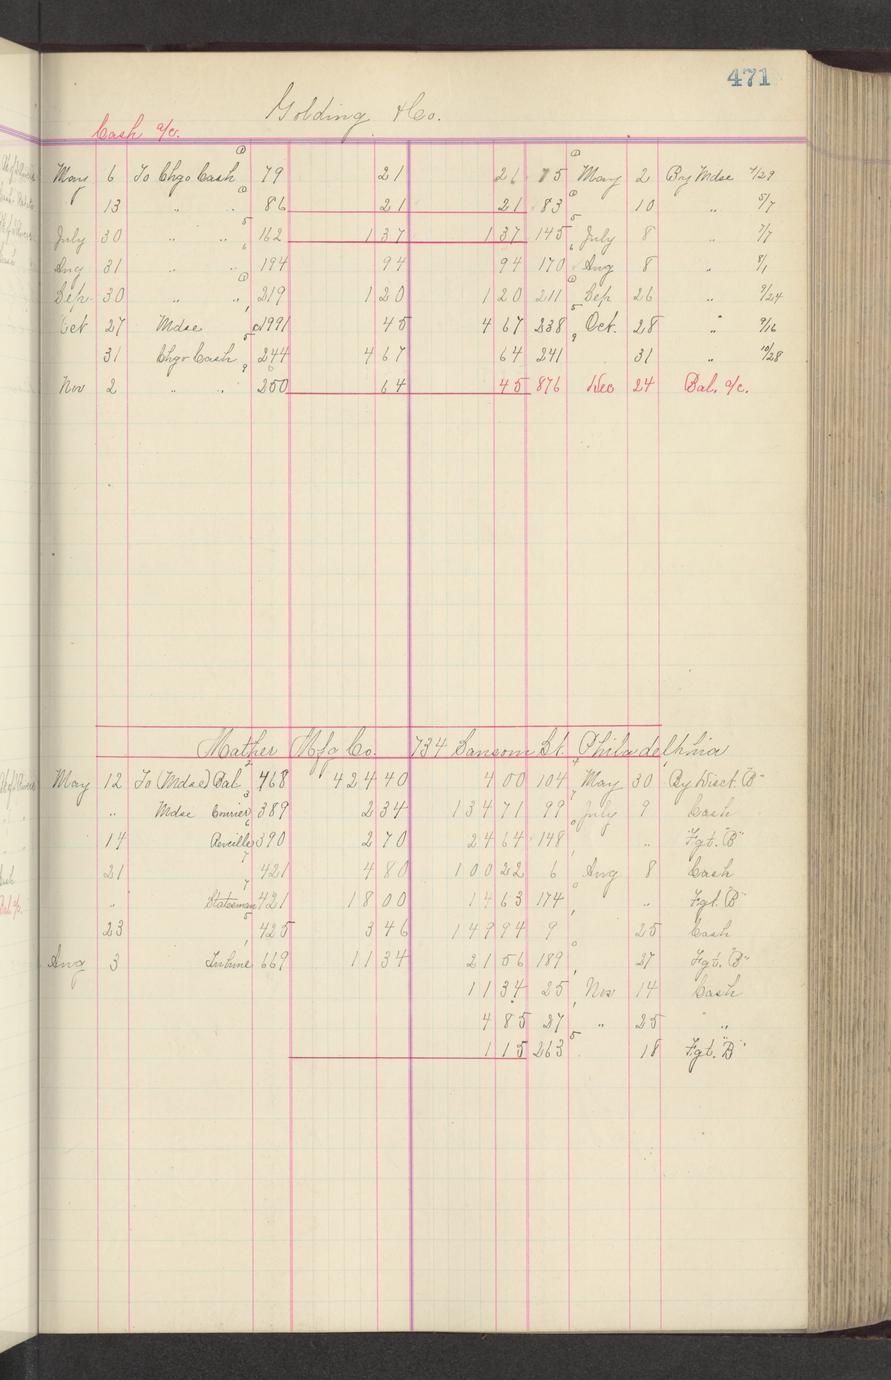 471
Golding & Co.
Cash a/c.
May 6 To Chgo Cash 79 21 26 75 May 2 By Mdse 4/29
13 " " 86 21 21 83 10 " 5/7
July 30 " " 162 1 37 1 37 145 July 8 " 7/7
Aug 31 " " 194 94 94 170 Aug 8 " 8/1
Sep 30 " " 219 1 20 1 20 211 Sep 26 " 9/24
Oct 27 Mdse 1991 45 4 67 238 Oct. 28 " 9/16
31 Chgo Cash 244 4 67 64 241 31 " 10/28
Nov 2 " " 250 64 45 876 Dec 24 Bal. a/c.
Mather Mfg Co. 734 Sansom St. Philadelphia
May 12 To (Mdse) Bal 468 424 40 4 00 104 May 30 By Disct. "B"
" Mdse Courier 389 2 34 134 71 99 July 9 Cash
14 Reveille 390 2 70 24 64 148 " Fgt. "B"
21 421 4 80 100 22 6 Aug 8 Cash
" Statesman 421 18 00 14 63 174 " Fgt. "B"
23 425 3 46 149 94 9 25 Cash
Aug 3 Tribune 669 11 34 21 56 189 27 Fgt. "B"
11 34 25 Nov 14 Cash
4 85 27 " 25 " "
1 15 263 18 Fgt. "B"